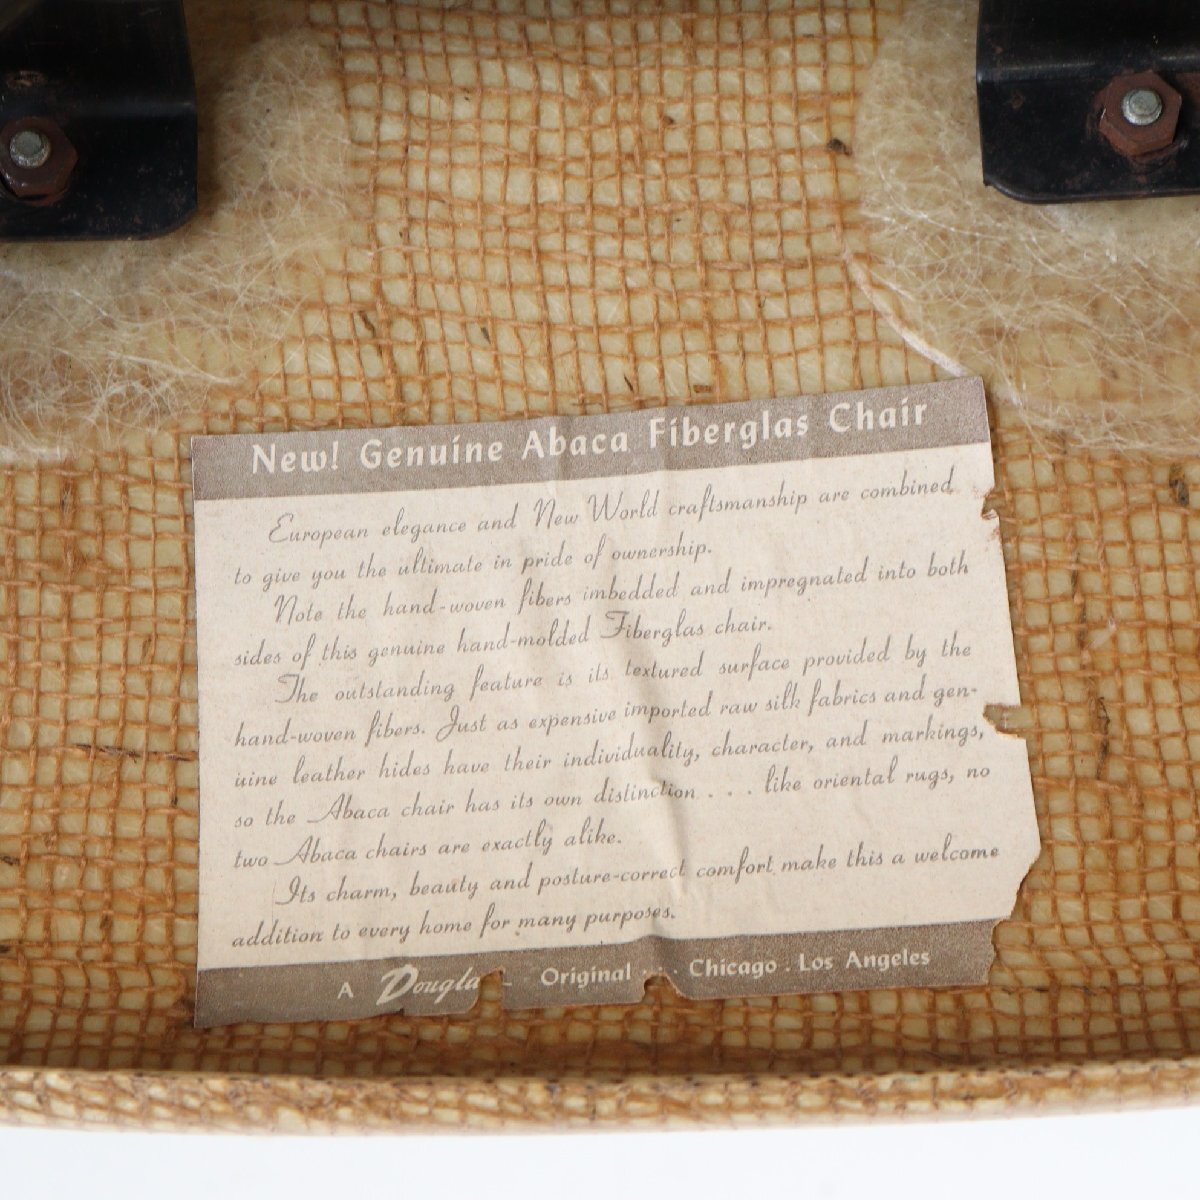 New! Genuine Abaca Fiberglas Chair
European elegance and New World craftsmanship are combined
to give you the ultimate in pride of ownership.
Note the hand-woven fibers imbedded and impregnated into both
sides of this genuine hand-molded Fiberglas chair.
The outstanding feature is its textured surface provided by the
hand-woven fibers. Just as expensive imported raw silk fabrics and gen-
uine leather hides have their individuality, character, and markings,
so the Abaca chair has its own distinction . . . like oriental rugs, no
two Abaca chairs are exactly alike.
Its charm, beauty and posture-correct comfort make this a welcome
addition to every home for many purposes.
A Dougla Original . . . Chicago . Los Angeles